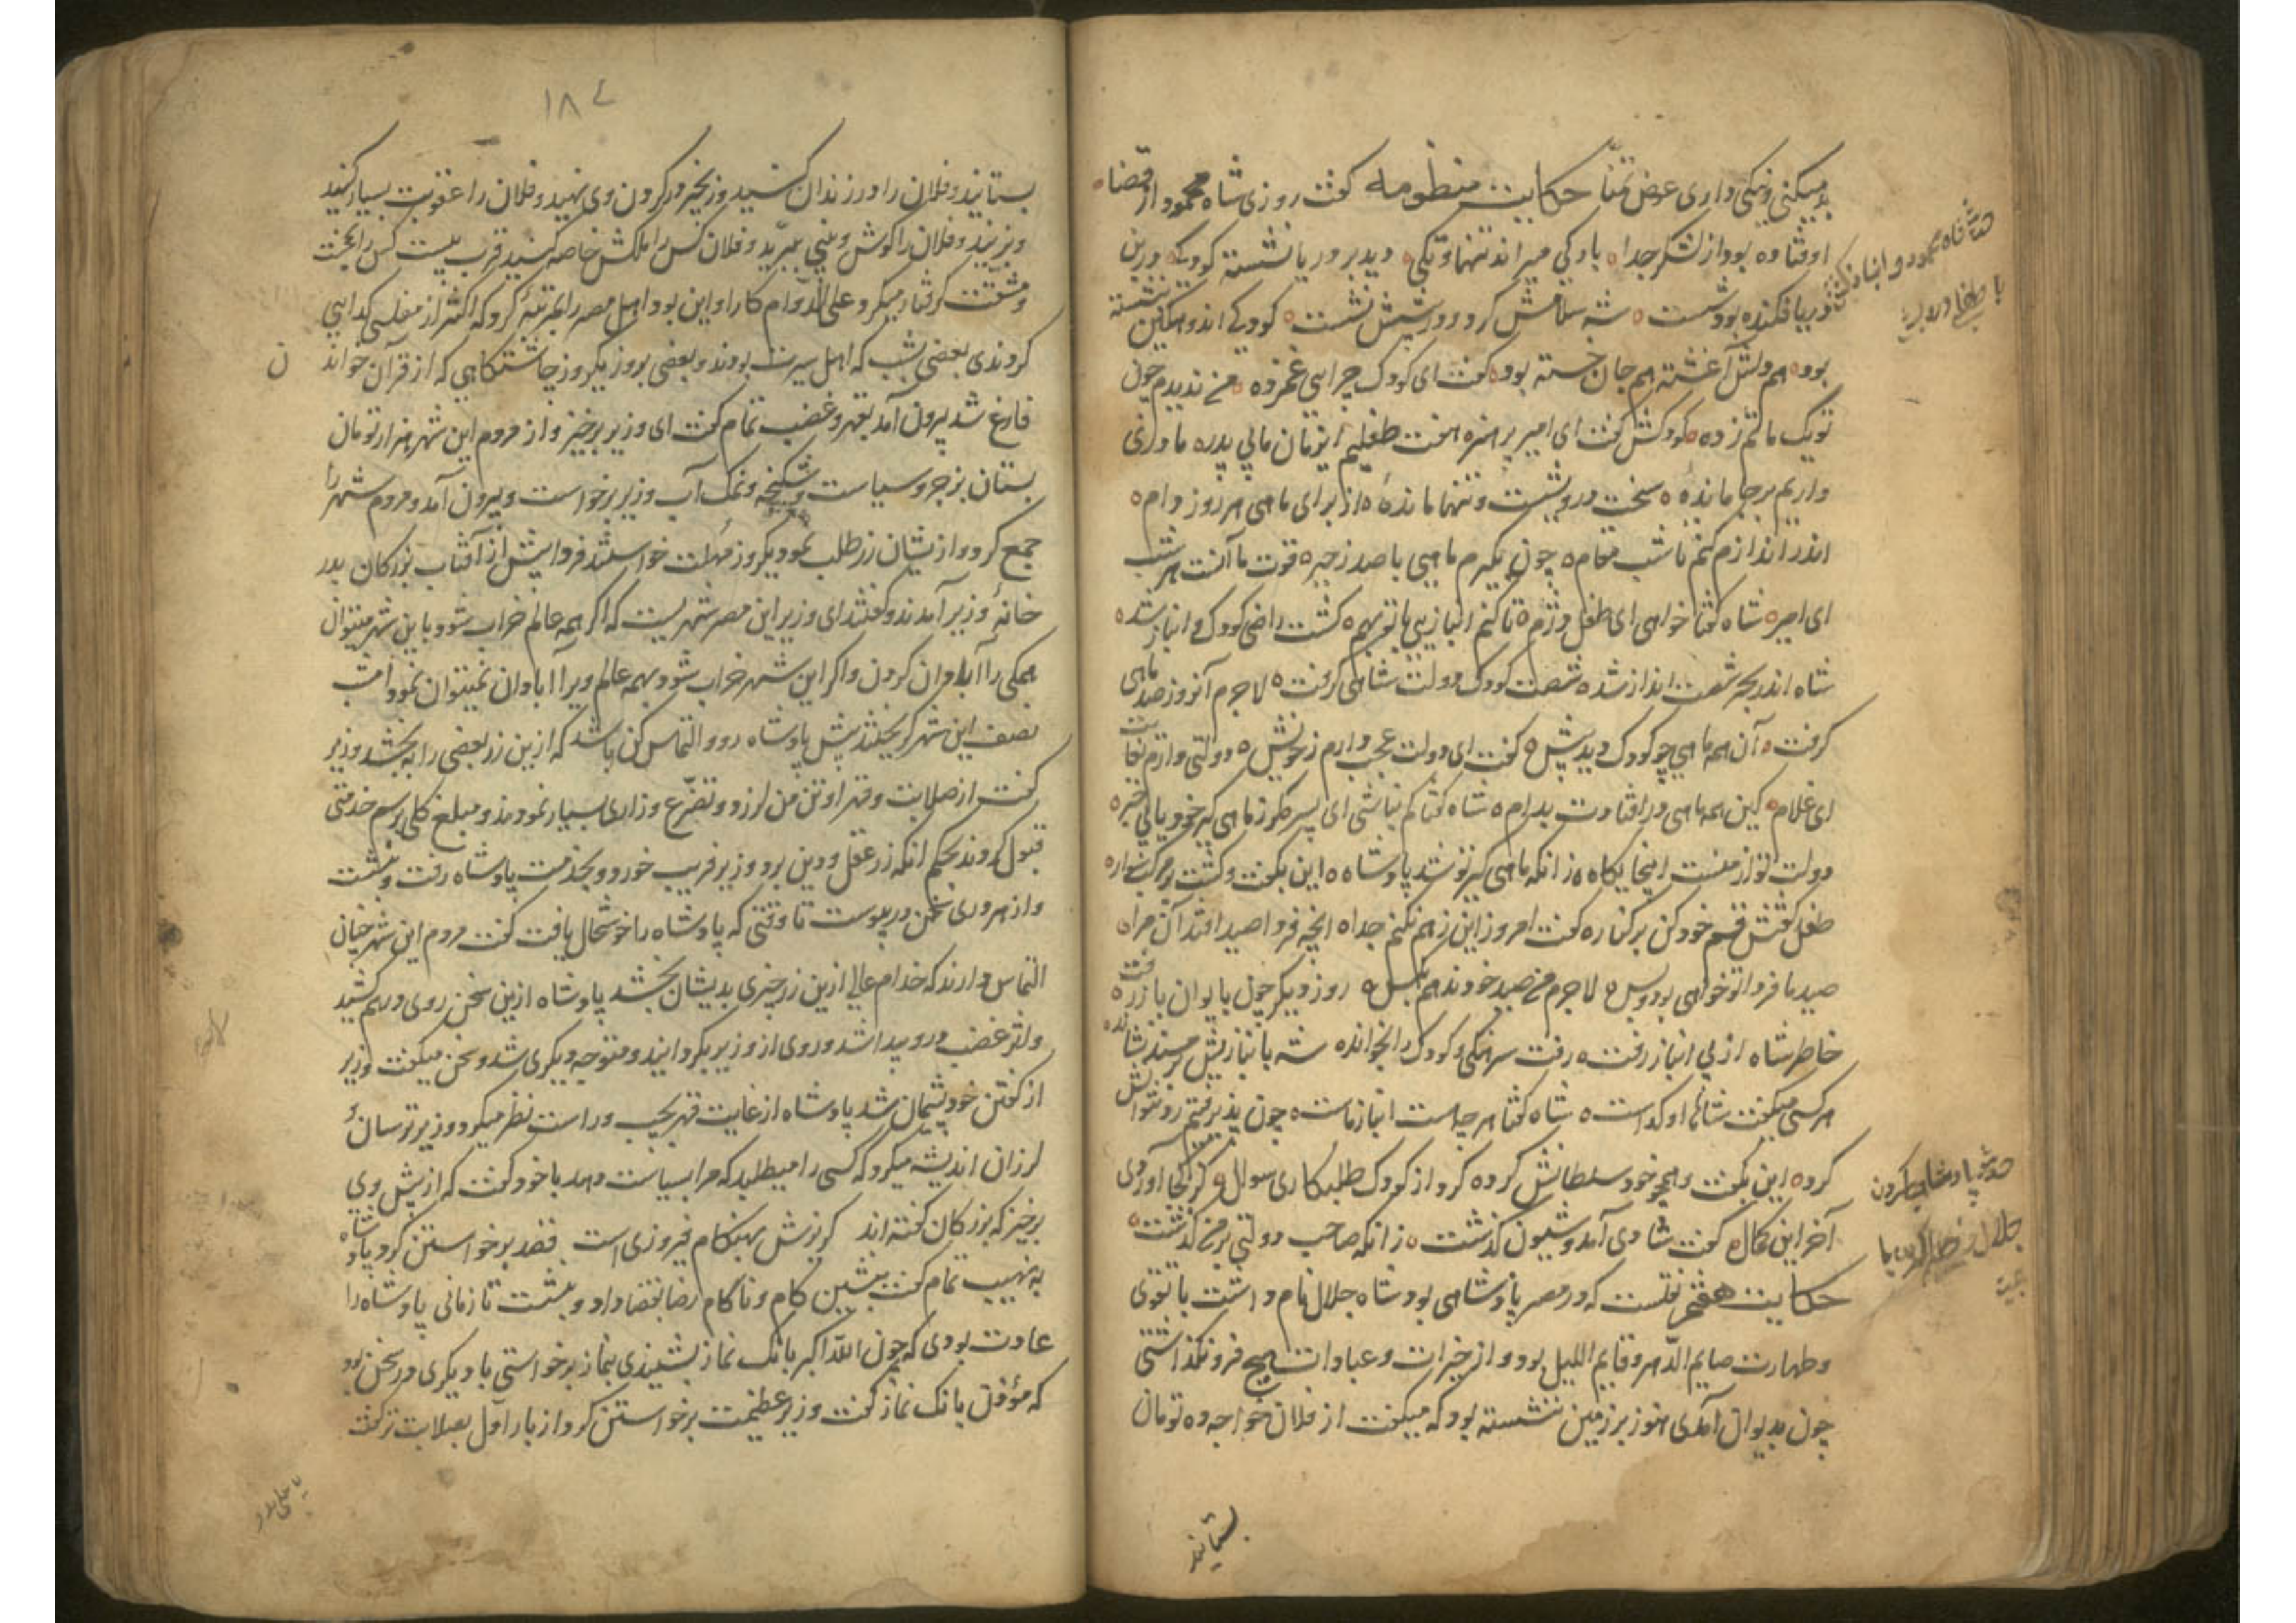 بد میکنی و نیکی داری عوض تمنّا حکایت منظومه گفت روزی شاه محمود از قضا
اوفتاده بود از لشکر جدا بادکی میراند تنها وتکی دید بر دریا نشسته کودکی در بن
دریا فکنده بود شست شه سلامش کرد و در پیشش نشست کودکی اندوهگین بنشسته
بود هم دلش آغشته هم جان خسته بود گفت ای کودک چرایی غمزده من ندیدم چون
تو یک ماتم زده کودکش گفت ای امیر پر هنر هفت طفلیم این زمان مابی پدر مادری
داریم بر جا مانده سخت درویشست و تنها مانده از برای ماهی هر روز دام
اندر اندازم کنم تا شب مقام چون بگیرم ماهیی با صد زحیر قوت ما آنست هر شب
ای امیر شاه گفتا خواهی ای طفل دژم تا کنم انبازیی با تو بهم گشت راضی کودک و انباز شد
شاه اندر بحر شست انداز شد شست کودک دولت شاهی گرفت لاجرم آنروز صد ماهی
گرفت آن همه ماهی چو کودک دید پیش گفت ای دولت عجب دارم زخویش دولتی دارم بغایت
ای غلام کین همه ماهی در افتادت بدام شاه گفتا کم نباشی ای پسر گر ز ماهی گیر خود یابی خبر
دولت تو از منست اینجایگاه زانکه ماهی گیر تو شد پادشاه این بگفت و گشت بر مرکب سوار
طفل گفتش قسم خود کن بر کنار گفت امروز این زهم نکنم جدا آنچه فردا صید افتد آن مرا
صید ما فردا تو خواهی بود و بس لاجرم من صید خود ندهم بکس روز دیگر چون بایوان باز رفت
خاطر شاه از پی انباز رفت رفت سرهنگی و کودک را بخواند شه بانبازیش بر مسند نشاند
هر کسی میگفت شاها او گداست شاه گفتا هر چه است انباز ماست چون پذیرفتیم رد نتوانش
کرد این بگفت و همچو خود سلطانش کرد کرد از کودک طلبکاری سوال کز کجا آوردی
آخر این کمال گفت شادی آمد و شیون گذشت زانکه صاحب دولتی بر من گذشت
حکایت هفتم نقلست که در مصر پادشاهی بود شاه جلال نام داشت با تقوی
وطهارت صایم الدّهر و قایم اللیل بود و از خیرات و عبادات هیچ فرو نگذاشتی
چون بدیوان آمدی هنوز بر زمین ننشسته بود که میگفت از فلان خواجه ده تومان
بستانید
۱۸۷
بستانید و فلان را در زندان کشید و زنجیر در گردن وی نهید و فلان را عقوبت بسیار کنید
و بزنید و فلان را گوش و بینی ببرّید و فلان کس را ملکش خاصه کنید قرب بیست کس را بمحنت
و مشقّت گرفتار میکرد و علی الدّوام کار او این بود اهل مصر را بمرتبهٔ کرد که اکثر از مفلسی گدایی
کردندی بعضی بشب که اهل سیرت بودند و بعضی بروز یکروز چاشتگاهی که از قرآن خواندن
فارغ شد بیرون آمد بقهر و غضب تمام گفت ای وزیر برخیز و از مردم این شهر هزار تومان
بستان بزجر و سیاست و شکنجه و نمک آب وزیر برخواست و بیرون آمد و مردم شهر را
جمع کرد و از یشان زر طلب نمود یکروز مهلت خواستند فردا پیش از آفتاب بزرکان بدر
خانهٔ وزیر آمدند و گفتند ای وزیر این مصر شهریست که اگر همه عالم خراب شود با این شهر میتوان
همگی را آبادان کردن و اگر این شهر خراب شود بهمه عالم ویرا آبادان نمیتوان نمود امشب
نصف این شهر گریختند پیش پادشاه رو و التماس کن باشد که ازین زر بعضی را به بخشد وزیر
گفت از صلابت و قهر او تن من لرزد و تضرّع و زاری بسیار نمودند و مبلغ کلی برسم خدمتی
قبول کردند بحکم انکه زر عقل و دین برد وزیر فریب خورد و بخدمت پادشاه رفت و بنشست
و از هر دری سخن در پیوست تا وقتی که پادشاه را خوشحال یافت گفت مردم این شهر چنان
التماس دارند که خدام عالی ازین زر چیزی بدیشان بخشد پادشاه ازین سخن روی در هم کشید
و اثر غضب درو پیدا شد و روی از وزیر بگردانید و متوجه دیگری شد و سخن میگفت وزیر
از گفتن خود پشیمان شد پادشاه از غایت قهر بچپ و راست نظر میکرد و وزیر ترسان و
لرزان اندیشه میکرد که کسی را میطلبد که مرا بسیاست دهد با خود گفت که از پیش وی
برخیز که بزرکان گفته اند گریزش بهنگام فیروزی است قصد برخواستن کرد پادشاه
به نهیب تمام گفت بنشین کام و ناکام رضا بقضا داد و بنشست تا زمانی پادشاه را
عادت بودی که چون الله اکبر بانک نماز بشنیدی بنماز برخواستی با دیگری در سخن بود
که مؤذن بانک نماز گفت وزیر عظیمت برخواستن کرد از بار اوّل بصلابت تر گفت